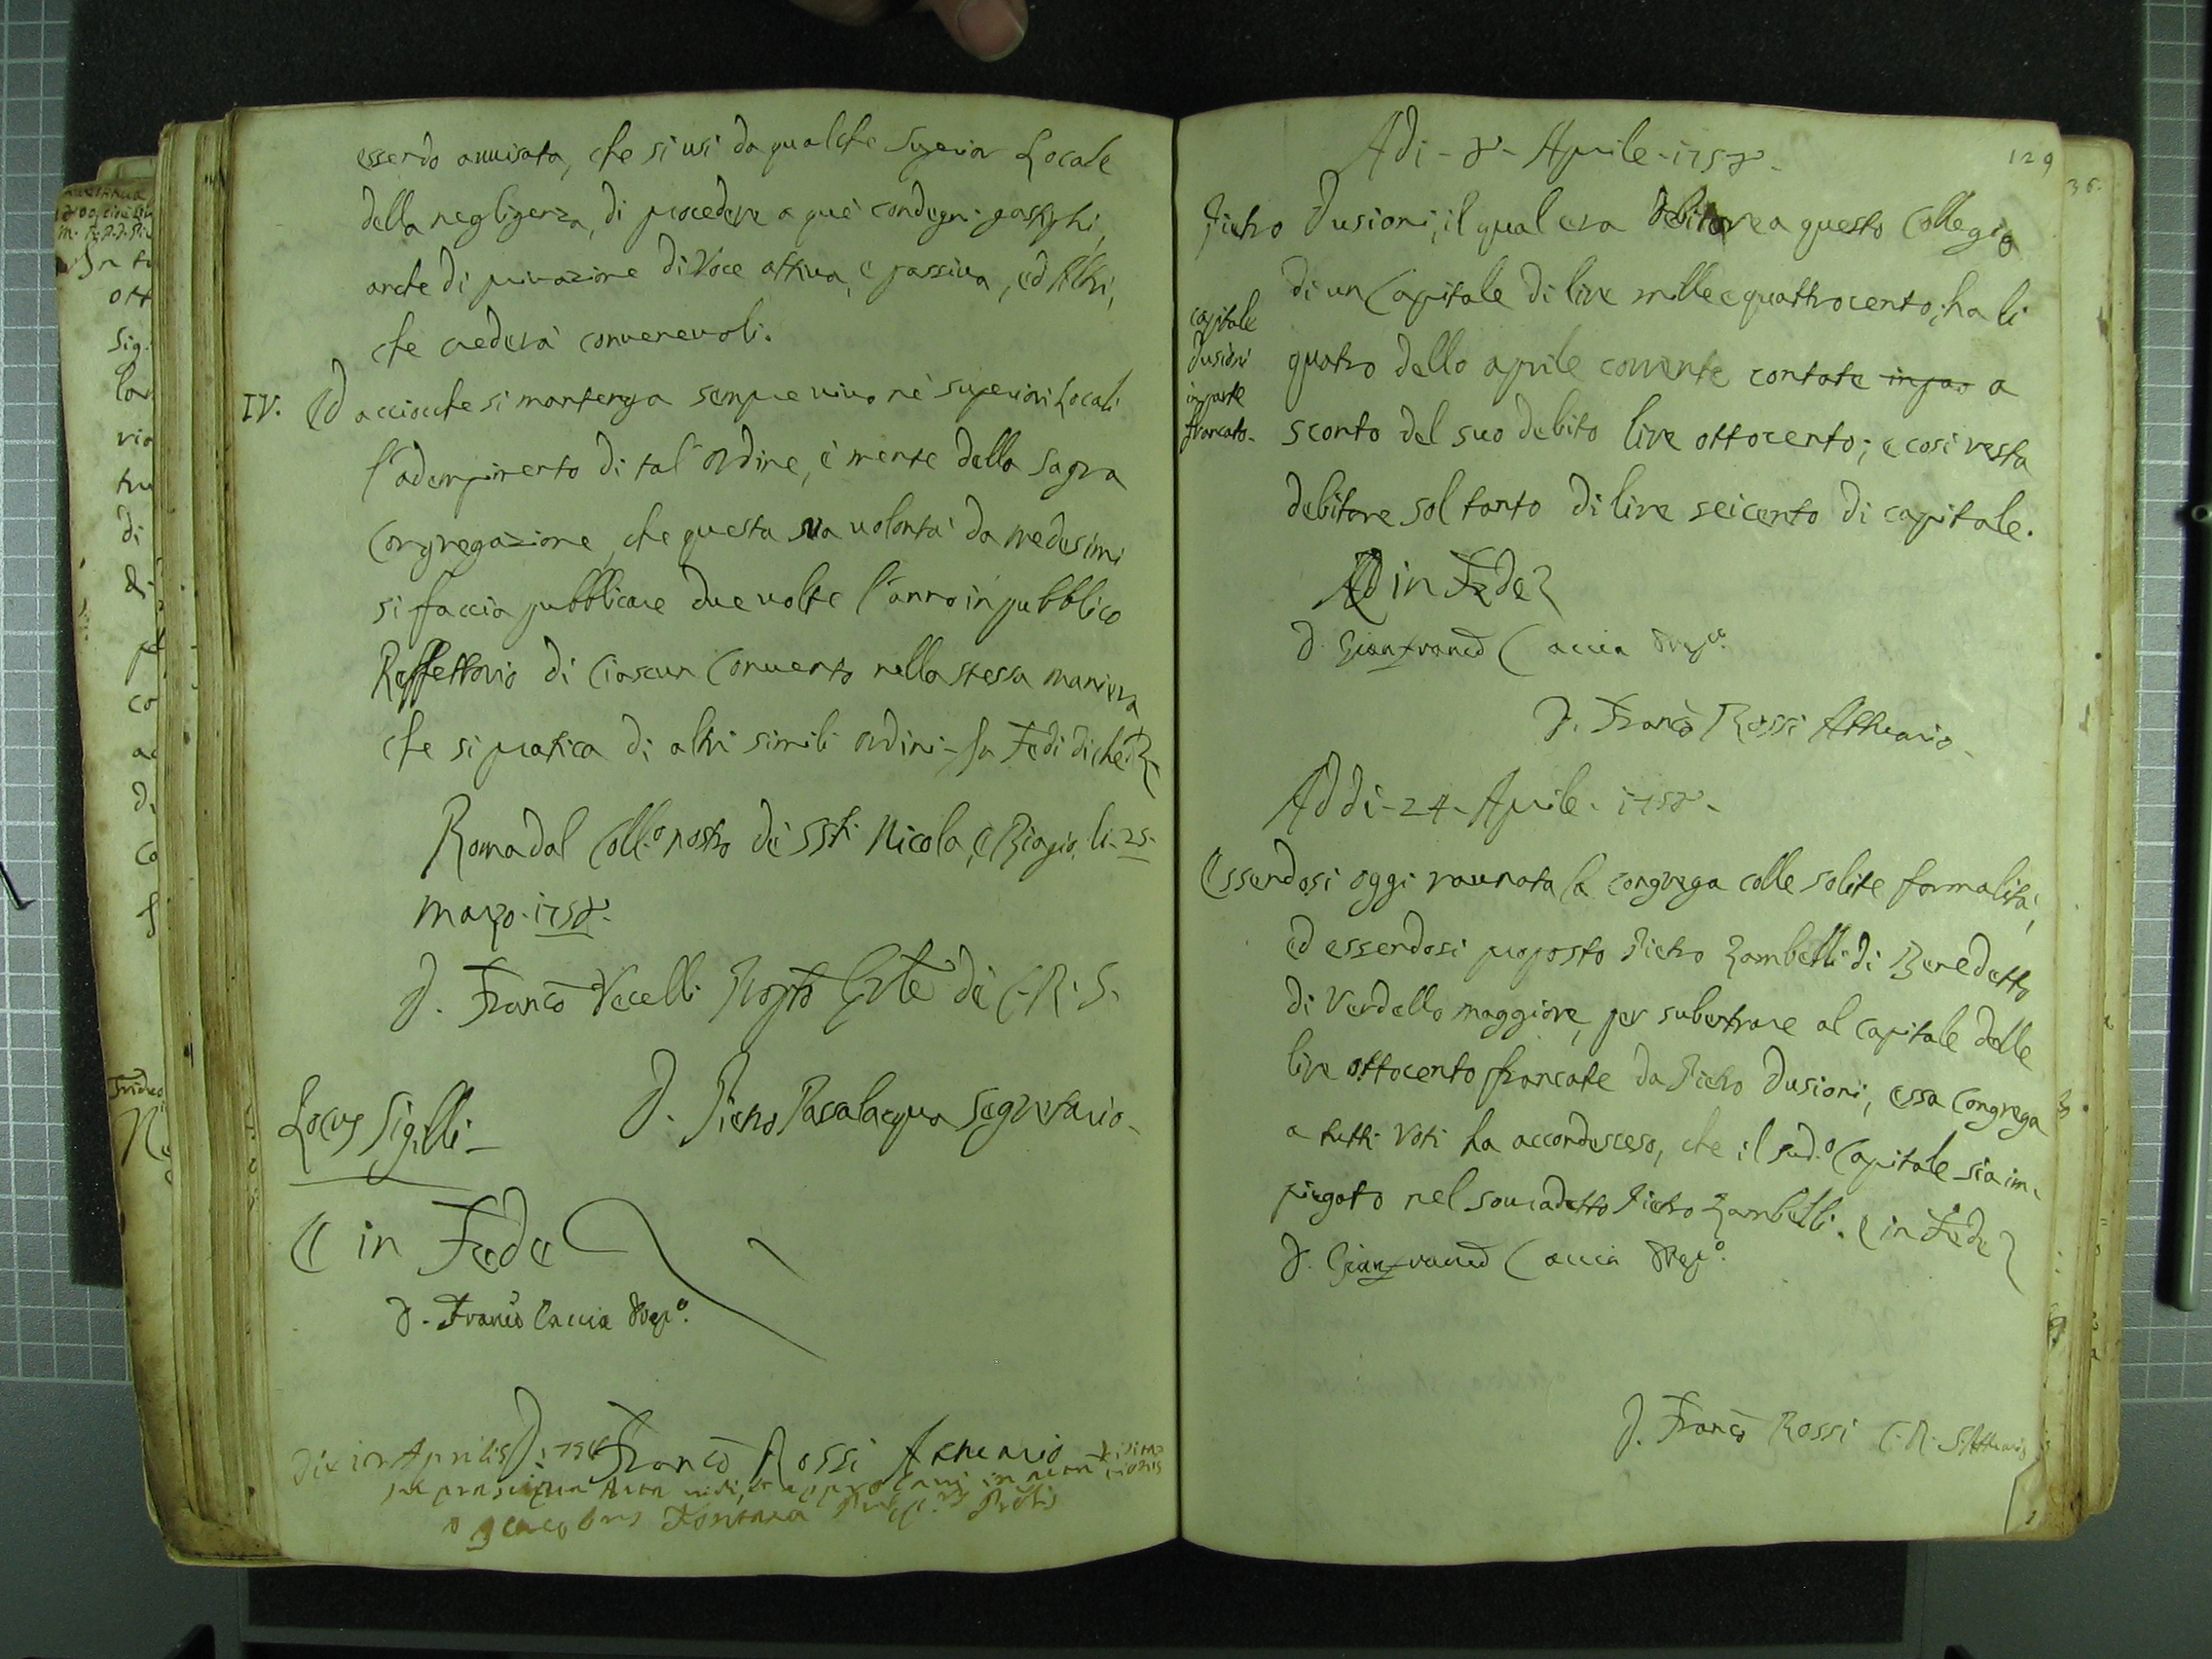 essendo auuisata, che si usi da qualche Superior Locale
della negligenza, di procedere a que' condegni gastighi,
anche di privazione di Voce attiva, e passiva, ed altri,
che crederà convenevoli.
IV. Ed acciocche si mantenga sempre vivo ne' superiori Locali
l'adempimento di tal ordine, è mente della Sagra
Congregazione, che questa sua volontà da medesimi
si faccia pubblicare due volte l'anno in pubblico
Reffettorio di Ciascun Convento nella stessa maniera
che si pratica di altri simili ordini - In Fede di che
Roma dal Coll.o nostro de SSti Nicola, e Biagio, li 25
Marzo 1758.
D. Franco Vecelli Prepto Gnle de C. R. S.
D. Pietro Pasalacqua Segretario -
Locus Sigilli -
E in Fede
D. Franco Caccia Prepo.
D. Franco Rossi Attuario
Die 12 Aprilis 1758
vidi, et approbavi in
Jacobus Fontana Prep. Prolis
129
Adi - 8 - Aprile - 1758 -
Pietro Dusioni, il qual era debitore a questo Collegio
di un Capitale di lire mille e quattrocento, ha li
quatro dello aprile corrente contate in pao a
sconto del suo debito lire ottocento; e così resta
debitore sol tanto di lire seicento di capitale.
capitale
Dusioni
in parte
francato.
Ed in Fede
D. Gianfranco Caccia Prepo.
D. Franco Rossi Attuario -
Addi - 24 - Aprile - 1758 -
Essendosi oggi raunata la congrega colle solite formalità,
ed essendosi proposto Pietro Zambelli di Benedetto
di Verdello maggiore, per subentrare al capitale delle
lire ottocento francate da Pietro Dusioni, essa Congrega
a tutti Voti ha accondesceso, che il sud.o Capitale sia im-
piegato nel souradetto Pietro Zambelli. E in Fede
D. Gianfranco Caccia Prepo.
D. Franco Rossi C. R. S. Attuario